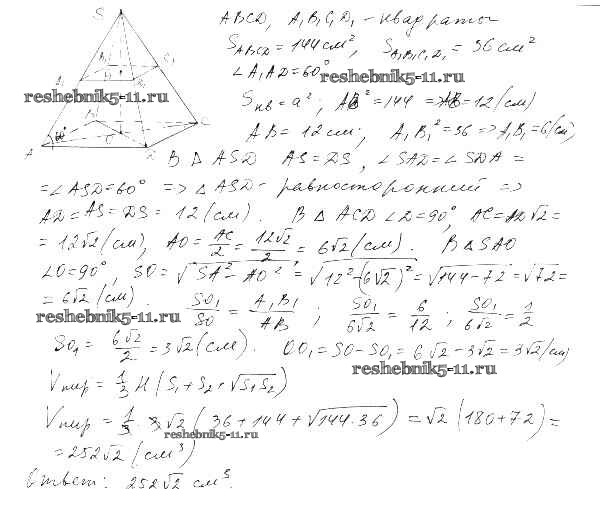 S
ABCD, A₁B₁C₁D₁ - квадраты
S_ABCD = 144 см², S_A₁B₁C₁D₁ = 36 см²
∠A₁AD = 60°
reshebnik5-11.ru
A₁ B₁ C₁
reshebnik5-11.ru
S_кв = a²; AB² = 144 => AB = 12 (см)
AB = 12 см; A₁B₁² = 36 => A₁B₁ = 6 (см)
60°
A B C D O
В △ ASD AS = DS, ∠SAD = ∠SDA =
= ∠ASD = 60° => △ ASD - равносторонний =>
AD = AS = DS = 12 (см). В △ ACD ∠D = 90°, AC = AD√2 =
= 12√2 (см), AO = AC/2 = 12√2/2 = 6√2 (см). В △ SAO
∠O = 90°, SO = √(SA² - AO²) = √(12² - (6√2)²) = √(144 - 72) = √72 =
= 6√2 (см). SO₁/SO = A₁B₁/AB; SO₁/6√2 = 6/12; SO₁/6√2 = 1/2
reshebnik5-11.ru
SO₁ = 6√2/2 = 3√2 (см). OO₁ = SO - SO₁ = 6√2 - 3√2 = 3√2 (см)
reshebnik5-11.ru
Vпир = 1/3 H (S₁ + S₂ + √(S₁S₂))
Vпир = 1/3 · 3√2 (36 + 144 + √(144·36)) = √2 (180 + 72) =
reshebnik5-11.ru
= 252√2 (см³)
Ответ: 252√2 см³.